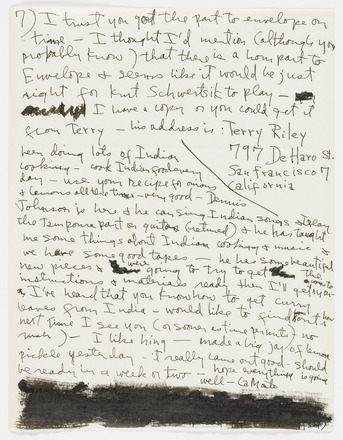 7) I trust you got the part to envelope on
time – I thought I'd mention (although you
probably know) that there is a horn part to
Envelope & seems like it would be just
right for Kurt Schwertsik to play –
I have a copy or you could get it
from Terry – his address is: Terry Riley
797 De Haro St.
San Francisco 7
California
been doing lots of Indian
cooking – cook Indian food every
day – use your recipe for onions
& lemons all the time – very good – Dennis
Johnson is here & he can sing Indian songs & I play
the tampoura part on guitar (retuned) & he has taught
me some things about Indian cooking & music &
we have some good tapes – he has some beautiful
new pieces & we going to try to get the
instructions & materials ready then I'll get
I've heard that you know how to get curry
leaves from India – would like to find out
next time I see you (or sooner as time permits) no
rush) – I like hing – made a big jar of lemon
pickle yesterday – I really came out good – should
be ready in a week or two – hope everything is going
well –